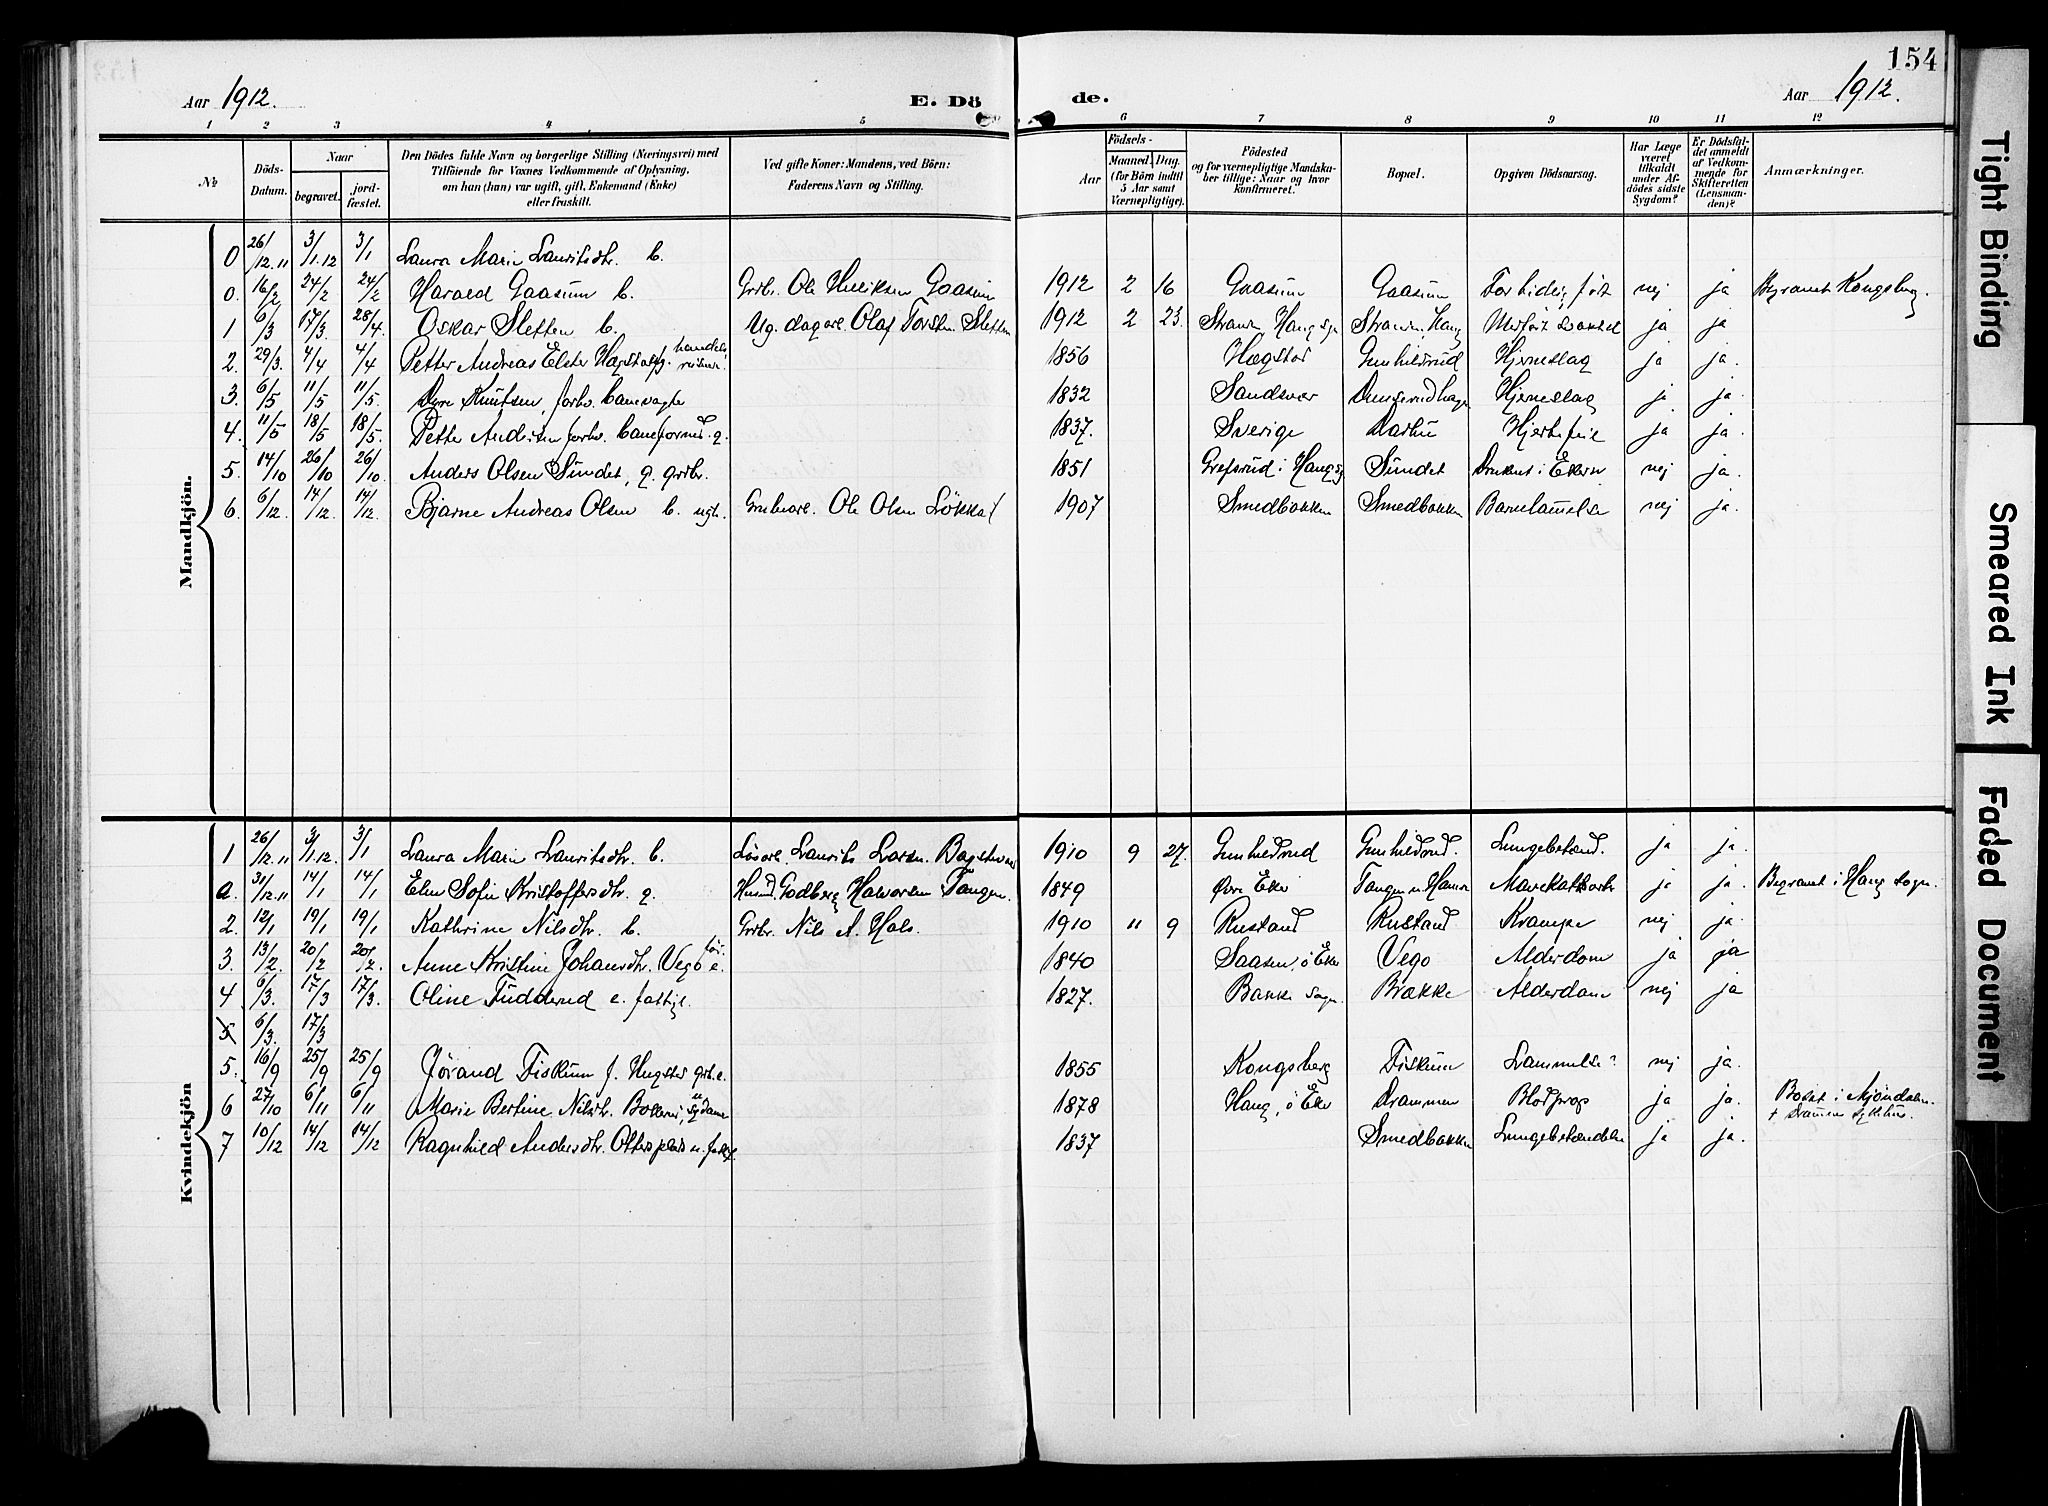 154
Aar 1912. E. Dö de. Aar 1912.
1 2 3 4 5 6 7 8 9 10 11 12
№ Döds-Datum. Naar begravet. jord-fæstet. Den Dödes fulde Navn og borgerlige Stilling (Næringsvei) med Tilföiende for Voxnes Vedkommende af Oplysning, om han (hun) var ugift, gift, Enkemand (Enke) eller fraskilt. Ved gifte Koner: Mandens, ved Börn: Faderens Navn og Stilling. Födsels- Aar Maaned. Dag. (for Börn indtil 5 Aar samt Værnepligtige). Födested og for værnepligtige Mandskaber tillige: Naar og hvor Konfirmeret. Bopæl. Opgiven Dödsaarsag. Har Læge været tilkaldt under Afdödes sidste Sygdom? Er Dödsfaldet anmeldt af Vedkommende for Skifteretten (Lensmanden)? Anmærkninger.
Mandkjön.
0 26/12.11 3/1.12 3/1 Laura Marie Lauritsdtr. b.
0. 16/2 24/2 24/2 Harald Gaasum b. Grdbr. Ole Gaasum 1912 2 16 Gaasum Gaasum For tidlig föit nej ja Begravet Kongsberg.
1 6/3 17/3 28/4. Oskar Sletten b. Ug. dagarb. Olaf Torsten Sletten 1912 2 23. Haug ja ja
2. 29/3. 4/4 4/4 Petter Andreas Elster handels 1856 Hægstad Gunhildrud Hjerneslag ja ja.
3. 6/5 11/5 11/5. Knutsen, forhv. banevagte 1832 Sandsvær Hjerneslag ja ja.
4. 11/5 18/5 18/5. Petter Andersen forhv. baneformd. g. 1837. Sverige Darbu Hjertefeil ja ja.
5. 14/10 26/10 26/10. Anders Olsen Sundet, g. grdbr. 1851 Sundet Druknet i Ekern nej ja.
6. 6/12. 14/12. 14/12. Bjarne Andreas Olsen b. Grubearb. Ole Olsen 1907 Smedbakken Smedbakken Barnelamelse nej ja.
Kvindekjön
1 26/12.11 3/1.12. 3/1 Laura Marie Lauritsdtr. b. Lösarb. Laurits Larsen 1910 9 27. Gunhildrud Gunhildrud. Lungebetænd. ja ja.
a. 31/12.11 14/1 14/1 Elen Sofie Kristoffersdtr. g. Husmd. Godberg Halvorsen Tangen. 1849 Øvre Eker Tangen ja ja. Begravet i Haug sogn.
2. 12/1 19/1 19/1 Kathrine Nilsdtr. b. Grdbr. Nils A. Hals. 1910 11 9 Rustand Rustand Krampe nej ja.
3. 13/2. 20/2 20/2. Anne Kristine Johansdtr. Vego e. 1840 ö Eker Vego Alderdom ja ja
4 6/3. 17/3 17/3. Oline Tudderud e. fattig. 1827. Bakke sogn. Brække Alderdom nej ja
5 6/3. 17/3
5. 16/9 25/9 25/9 Jörand Fiskum f. 1855 Kongsberg Fiskum Lammelse? nej ja.
6 27/10 6/11 6/11 Marie Bertine Nilsdtr. sydame 1878 Haug, ö Eker Drammen Blodprop ja ja. Bosat i Mjöndalen. + Drammen sykehus.
7 10/12 14/12 14/12 Ragnhild Andersdtr. 1837 Smedbakken Lungebetændelse ja ja.
Tight Binding
Smeared Ink
Faded Document